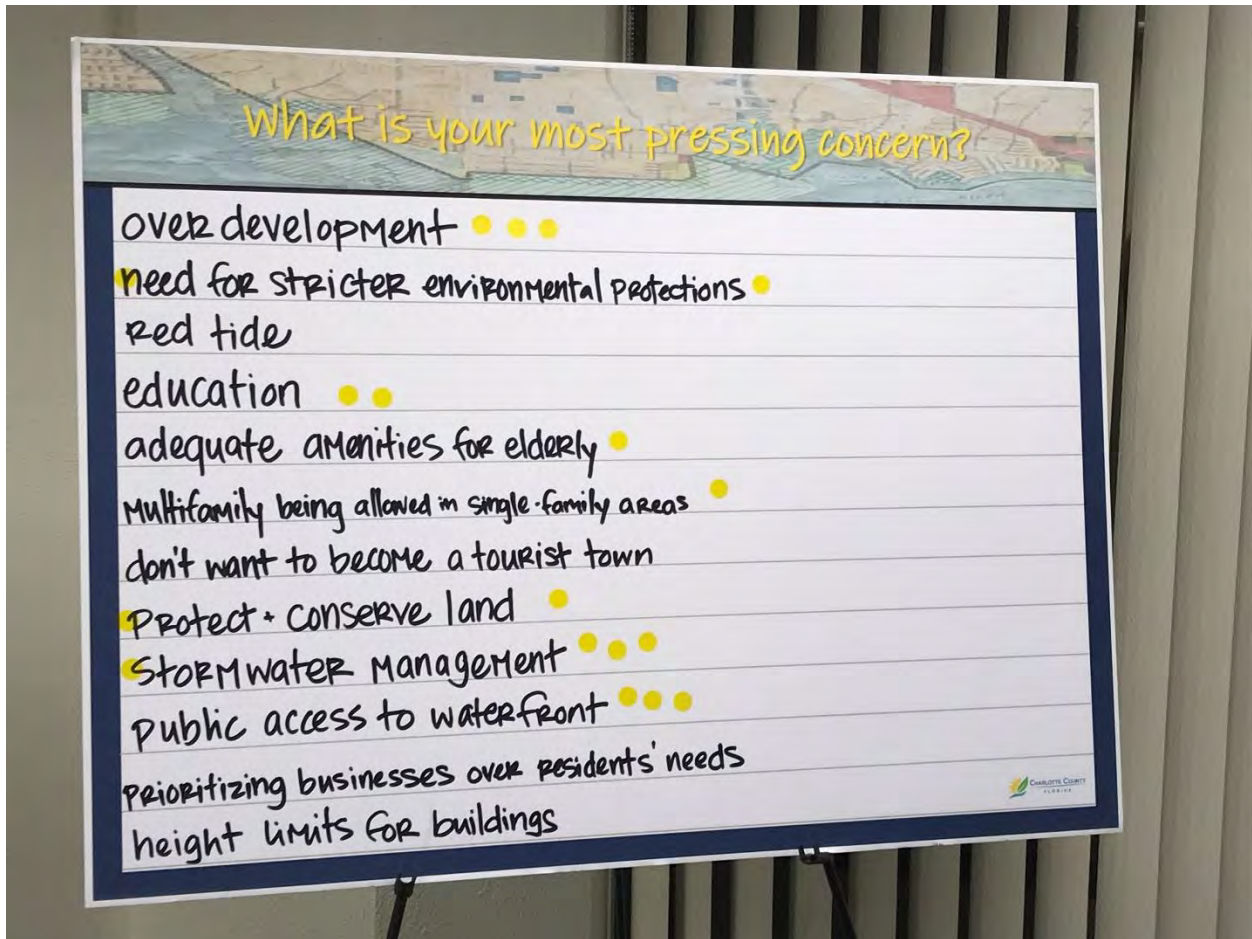 What is your most pressing concern?
over development
need for stricter environmental protections
Red tide
education
adequate amenities for elderly
Multifamily being allowed in single-family areas
don't want to become a tourist town
Protect + conserve land
Stormwater Management
public access to waterfront
prioritizing businesses over residents' needs
height limits for buildings
CHARLOTTE COUNTY
FLORIDA